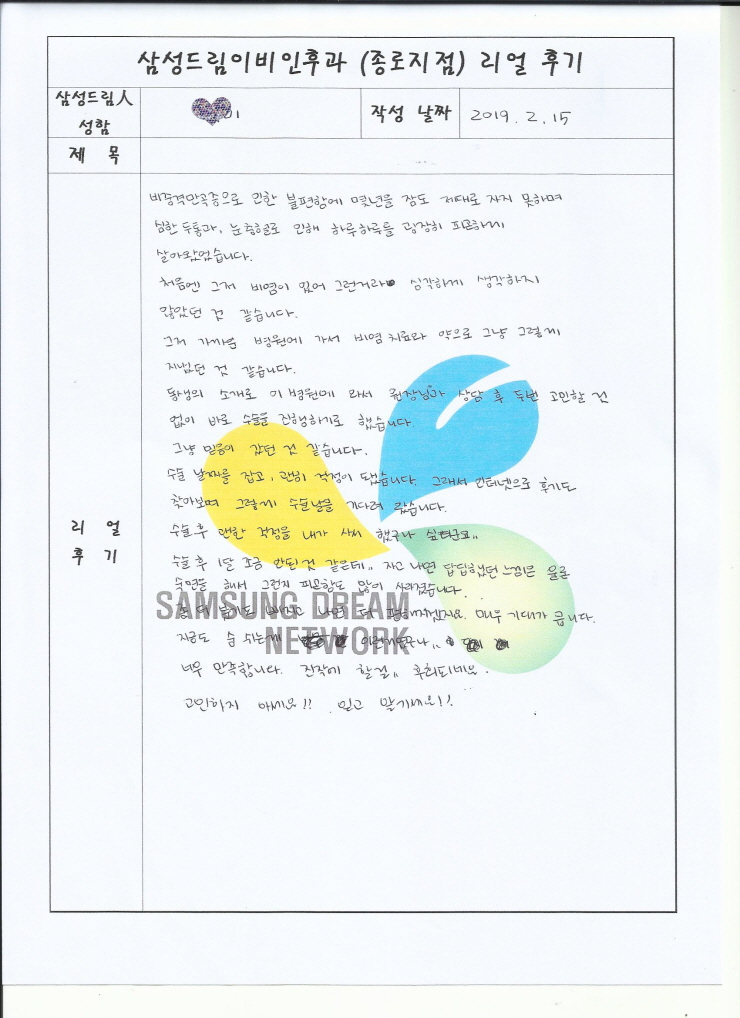 삼성드림이비인후과 (종로지점) 리얼 후기
삼성드림人
성함
이
작성 날짜
2019. 2. 15
제 목
비중격만곡증으로 인한 불편함에 몇년을 잠도 제대로 자지 못하며
심한 두통과, 눈충혈로 인해 하루하루를 굉장히 피곤하게
살아왔었습니다.
처음엔 그저 비염이 있어 그런거라 심각하게 생각하지
않았던 것 같습니다.
그저 가까운 병원에 가서 비염치료와 약으로 그냥 그렇게
지냈던 것 같습니다.
동생의 소개로 이 병원에 와서 원장님과 상담 후 두번 고민할 것
없이 바로 수술을 진행하기로 했습니다.
그냥 믿음이 갔던 것 같습니다.
수술 날짜를 잡고, 괜히 걱정이 됐습니다. 그래서 인터넷으로 후기도
찾아보며 그렇게 수술날을 기다려 왔습니다.
수술 후 괜한 걱정을 내가 사서 했구나
수술 후 1달 조금 안된것 같은데,, 자고 나면 답답했던 느낌은 물론
숙면을 해서 그런지 피곤함도 많이 사라졌습니다.
좀 더 붓기도 빠지고 나면 더 편해지겠지요. 매우 기대가 큽니다.
지금도 숨 쉬는게 이런거였구나,,
너무 만족합니다. 진작에 할걸,, 후회되네요.
고민하지 마세요!! 믿고 맡기세요!!
리 얼
후 기
SAMSUNG DREAM
NETWORK